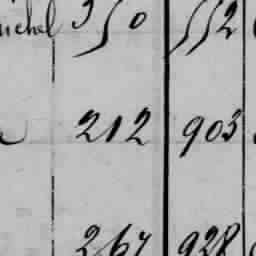 michel 350 552
212 903
267 928